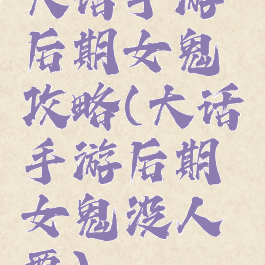 大话手游
后期女鬼
攻略(大话
手游后期
女鬼没人
要)